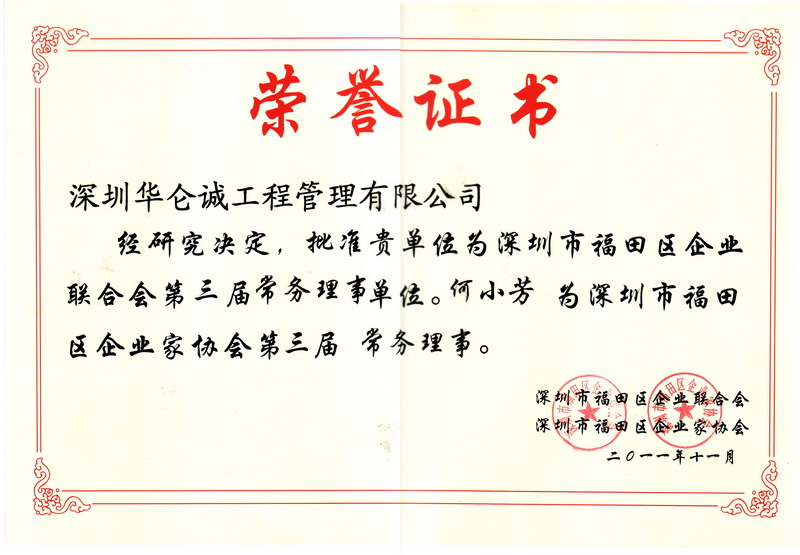 荣誉证书
深圳华仑诚工程管理有限公司
经研究决定，批准贵单位为深圳市福田区企业
联合会第三届常务理事单位。何小芳 为深圳市福田
区企业家协会第三届 常务理事。
深圳市福田区企业联合会
深圳市福田区企业家协会
二〇一一年十一月